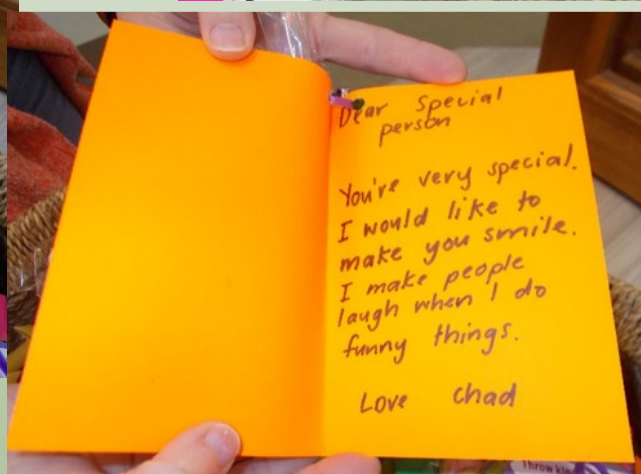 Dear Special
person
You're very special.
I would like to
make you smile.
I make people
laugh when I do
funny things.
Love chad
Throw kin